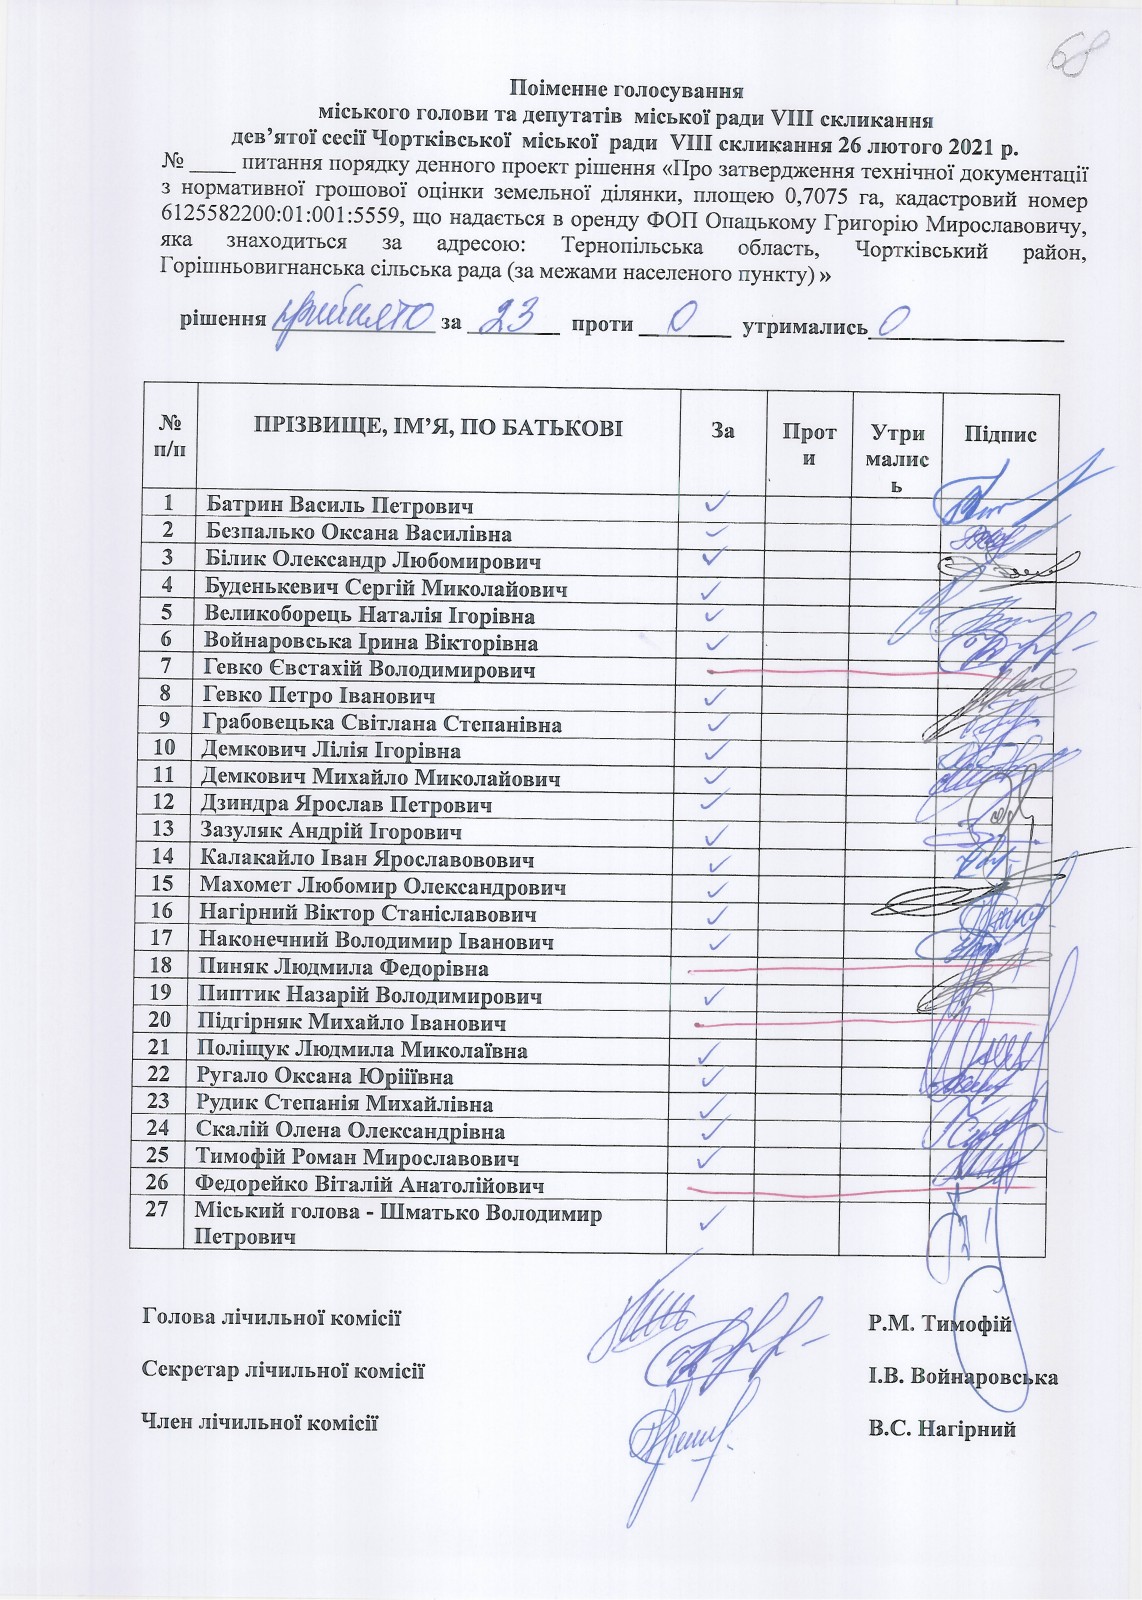 68
Поіменне голосування
міського голови та депутатів міської ради VIII скликання
дев’ятої сесії Чортківської міської ради VIII скликання 26 лютого 2021 р.
№ ____ питання порядку денного проект рішення «Про затвердження технічної документації
з нормативної грошової оцінки земельної ділянки, площею 0,7075 га, кадастровий номер
6125582200:01:001:5559, що надається в оренду ФОП Опацькому Григорію Мирославовичу,
яка знаходиться за адресою: Тернопільська область, Чортківський район,
Горішньовигнанська сільська рада (за межами населеного пункту) »
рішення прийнято за 23 проти 0 утримались 0
№ п/п ПРІЗВИЩЕ, ІМ’Я, ПО БАТЬКОВІ За Проти Утрималась Підпис
1 Батрин Василь Петрович ✓
2 Безпалько Оксана Василівна ✓
3 Білик Олександр Любомирович ✓
4 Буденькевич Сергій Миколайович ✓
5 Великоборець Наталія Ігорівна ✓
6 Войнаровська Ірина Вікторівна ✓
7 Гевко Євстахій Володимирович
8 Гевко Петро Іванович ✓
9 Грабовецька Світлана Степанівна ✓
10 Демкович Лілія Ігорівна ✓
11 Демкович Михайло Миколайович ✓
12 Дзиндра Ярослав Петрович ✓
13 Зазуляк Андрій Ігорович ✓
14 Калакайло Іван Ярославовович ✓
15 Махомет Любомир Олександрович ✓
16 Нагірний Віктор Станіславович ✓
17 Наконечний Володимир Іванович ✓
18 Пиняк Людмила Федорівна
19 Пиптик Назарій Володимирович ✓
20 Підгірняк Михайло Іванович
21 Поліщук Людмила Миколаївна ✓
22 Ругало Оксана Юріїївна ✓
23 Рудик Степанія Михайлівна ✓
24 Скалій Олена Олександрівна ✓
25 Тимофій Роман Мирославович ✓
26 Федорейко Віталій Анатолійович
27 Міський голова - Шматько Володимир ✓
Петрович
Голова лічильної комісії Р.М. Тимофій
Секретар лічильної комісії І.В. Войнаровська
Член лічильної комісії В.С. Нагірний